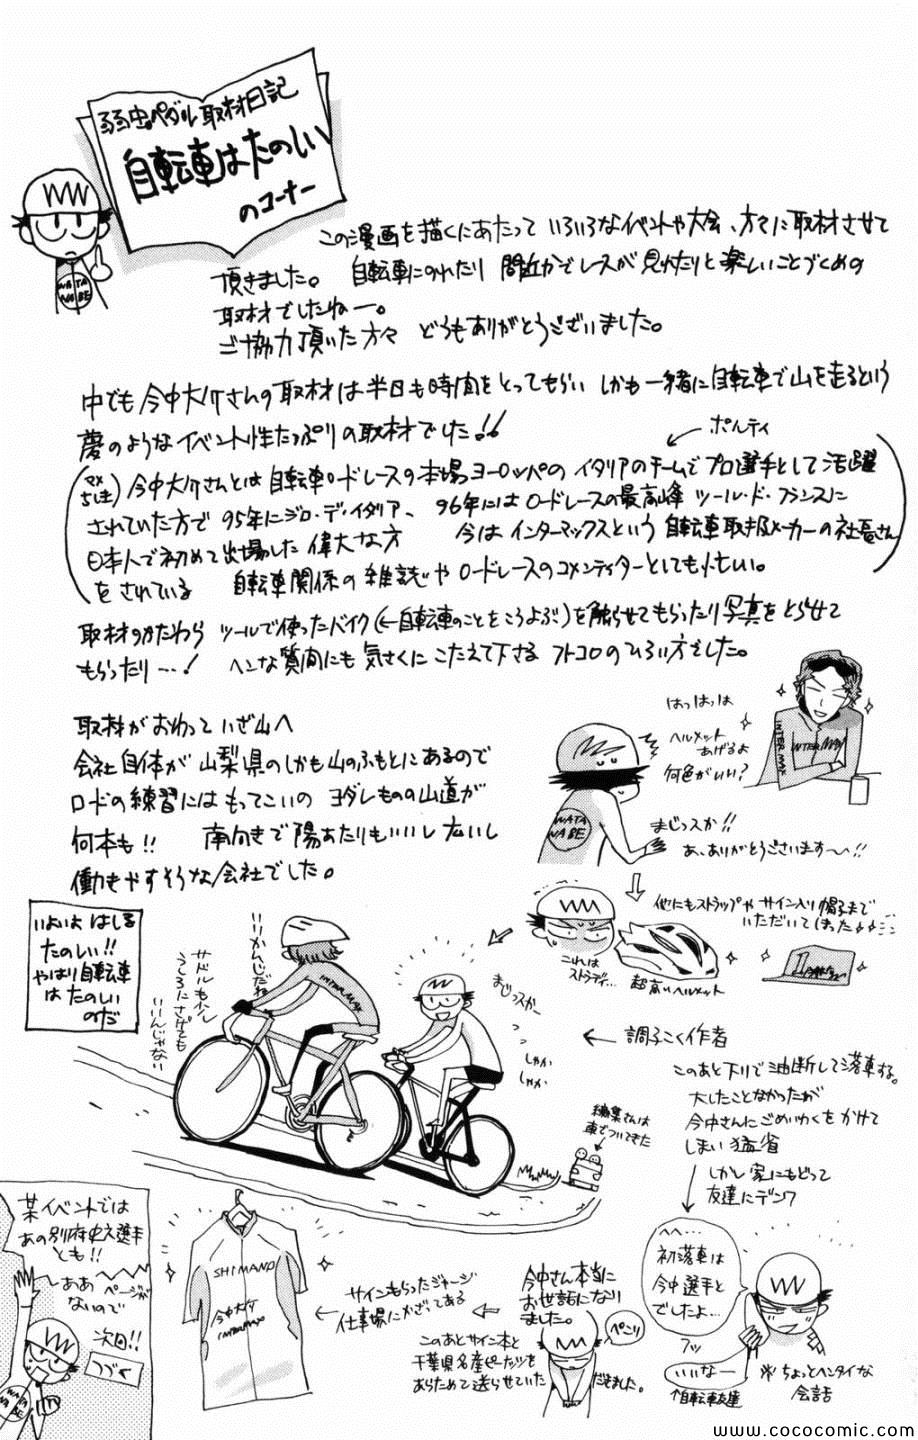 弱虫ペダル取材日記
自転車はたのしい
のコーナー
WATA
NABE
この漫画を描くにあたって いろいろなイベントや大会、方々に取材させて
頂きました。 自転車にのれたり 間近かでレースが見れたりと楽しいことづくめの
取材でしたねー。
ご協力頂いた方々 どうもありがとうございました。
中でも今中大介さんの取材は半日も時間をとってもらい しかも一緒に自転車で山を走るという
夢のようなイベント性たっぷりの取材でした!!
← ポルティ
(マメちしき) 今中大介さんとは自転車ロードレースの本場ヨーロッパのイタリアのチームでプロ選手として活躍
されていた方で95年にジロ・デ・イタリア、 96年にはロードレースの最高峰 ツール・ド・フランスに
日本人で初めて出場した偉大な方 今はインターマックスという自転車取扱メーカーの社長さん
をされている 自転車関係の雑誌やロードレースのコメンテイターとしても忙しい。
取材のかたわら ツールで使ったバイク(←自転車のことをこうよぶ)を触らせてもらったり写真をとらせて
もらったり…! ヘンな質問にも気さくにこたえて下さる フトコロのひろい方でした。
取材がおわっていざ山へ
会社自体が山梨県のしかも山のふもとにあるので
ロードの練習にはもってこいの ヨダレものの山道が
何本も!! 南向きで陽あたりもいいし広いし
働きやすそうな会社でした。
はっはっは
ヘルメット
あげるよ
何色がいい?
INTERMAX
INTERMAX
WATA
NABE
まじっスか!!
あ、ありがとうございます〜〜!!
他にもストラップや サイン入り帽子まで
いただいてしまった
これは
ストラディ…
超高いヘルメット
いよいよ はしる
たのしい!!
やはり自転車
は たのしい
のだ
いいかんじだね
サドルもう少し
うしろにさげても
いいんじゃない
INTERMAX
まじっスかー
しゃか
しゃか
← 調子こく作者
このあと下りで油断して落車する。
大したことなかったが
今中さんにごめいわくをかけて
しまい猛省
しかし家にもどって
友達にデンワ
編集さんは
車でついてきた
某イベントでは
あの別府史之選手
とも!!
ああ ページが
ないので
次回!!
つづく
WATA
NABE
SHIMANO
今中大介
INTERMAX
サインもらったジャージ
← 仕事場にかざってある
今中さん本当に
お世話になり
ました。
ぺこり
このあとサイン本と
千葉県名産ピーナッツを
あらためて送らせていただきました。
へへ…
初落車は
今中選手と
でしたよ…
フッ
いいなー
↑自転車友達
※ちょっとヘンタイな
会話
www.cococomic.com